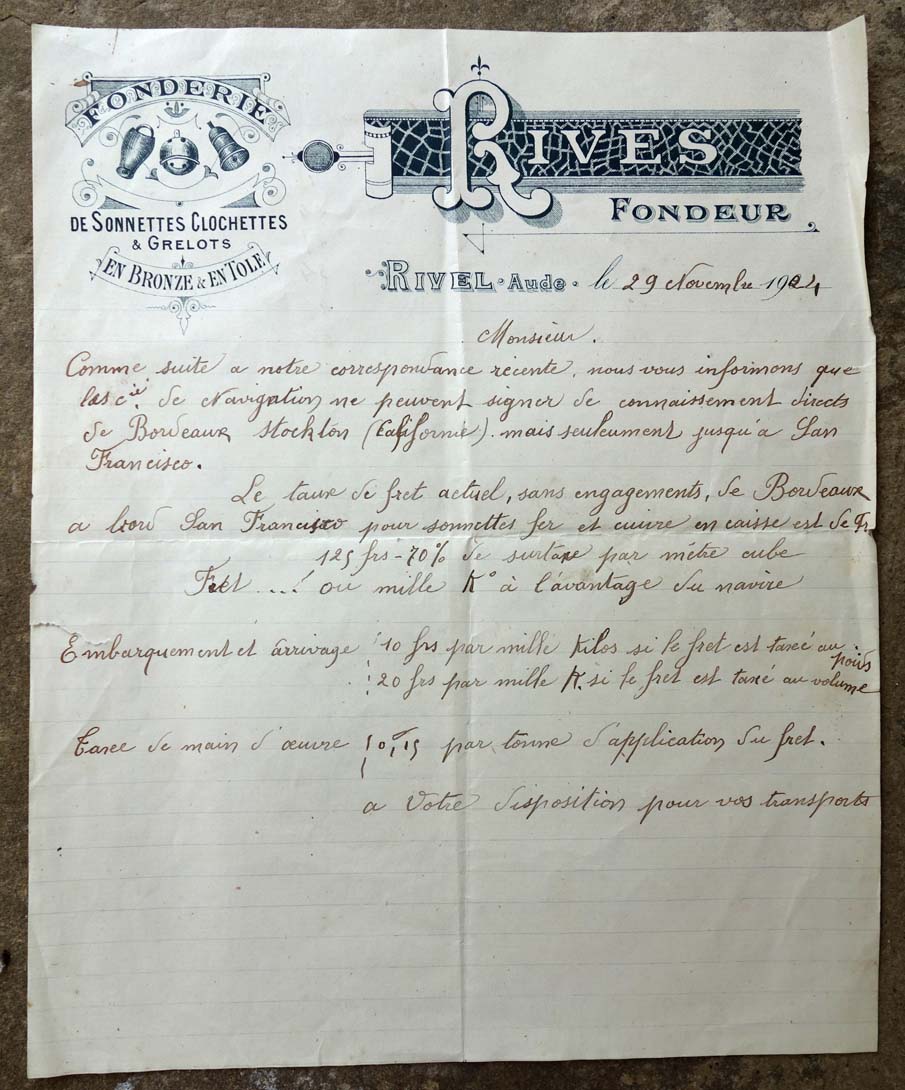 FONDERIE
DE SONNETTES CLOCHETTES
& GRELOTS
EN BRONZE & EN TOLE
RIVES
FONDEUR
RIVEL Aude le 29 Novembre 1924
Monsieur.
Comme suite a notre correspondance récente, nous vous informons que
les cies de Navigation ne peuvent signer de connaissement directs
de Bordeaux stockton (Californie). mais seuleument jusqu'a San
Francisco.
Le taux de fret actuel, sans engagements, de Bordeaux
a bord San Francisco pour sonnettes fer et cuivre en caisse est de Fr
125 frs - 70% de surtaxe par mètre cube
Fret ...! ou mille K° à l'avantage du navire
Embarquement et arrivage 10 frs par mille Kilos si le fret est taxé au poids
20 frs par mille K. si le fret est taxé au volume
Taxe de main d'œuvre 0,15 par tonne d'application du fret.
a Votre disposition pour vos transports